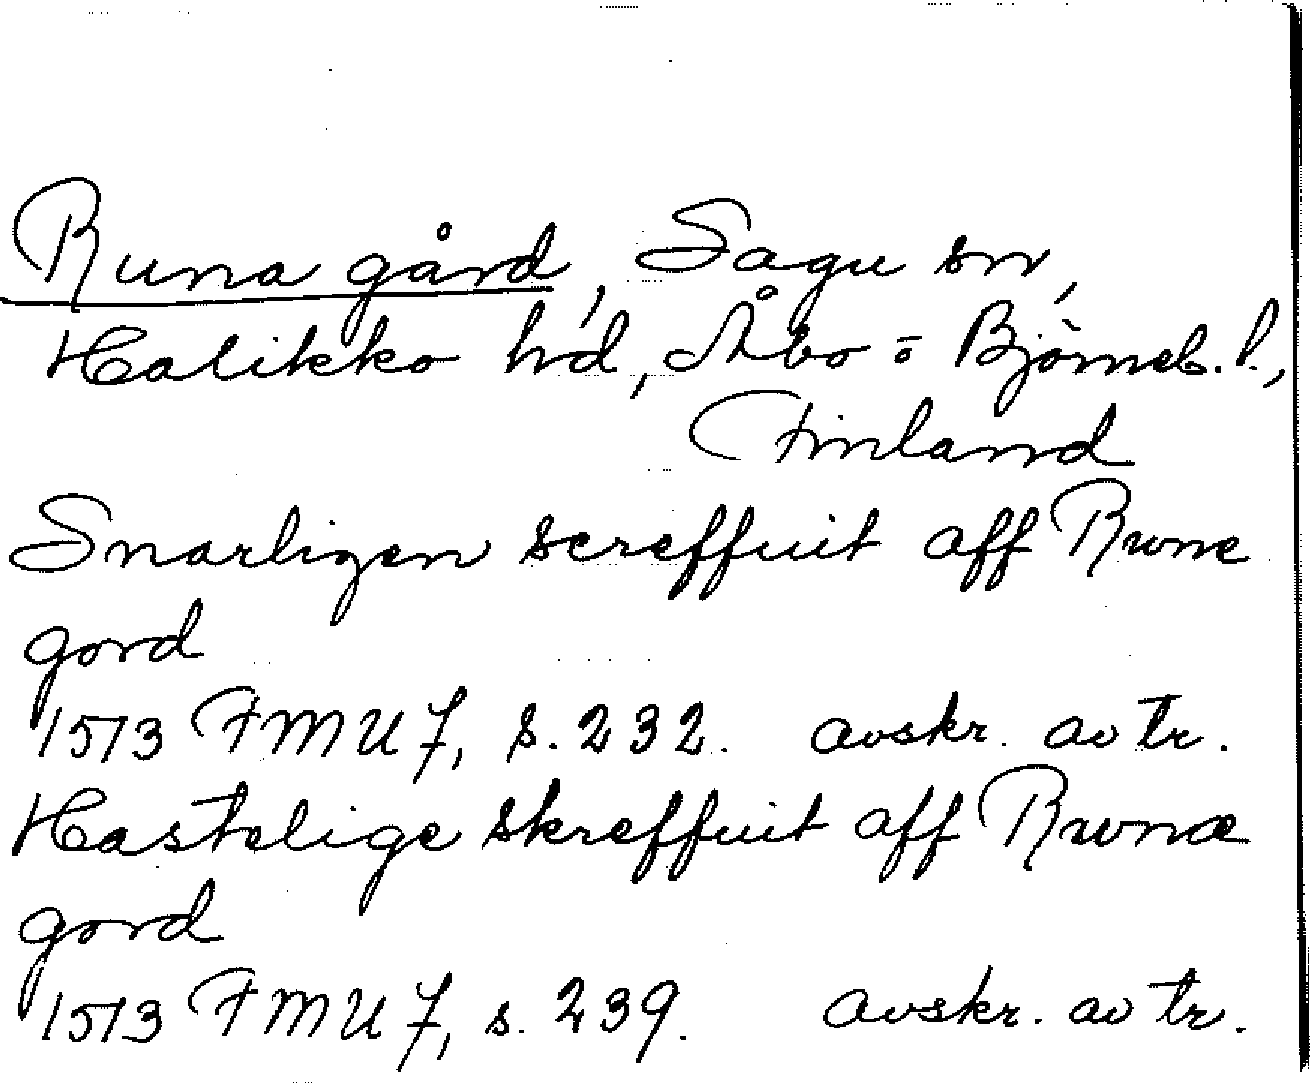 Runa gård, Sagu sn,
Halikko hd, Åbo o Björneb. l.,
Finland
Snarligen screffuit aff Rwne
gord
1513 FMU 7, s. 232. avskr. av tr.
Hastelige skreffuit aff Rwnæ
gord
1513 FMU 7, s. 239. avskr. av tr.